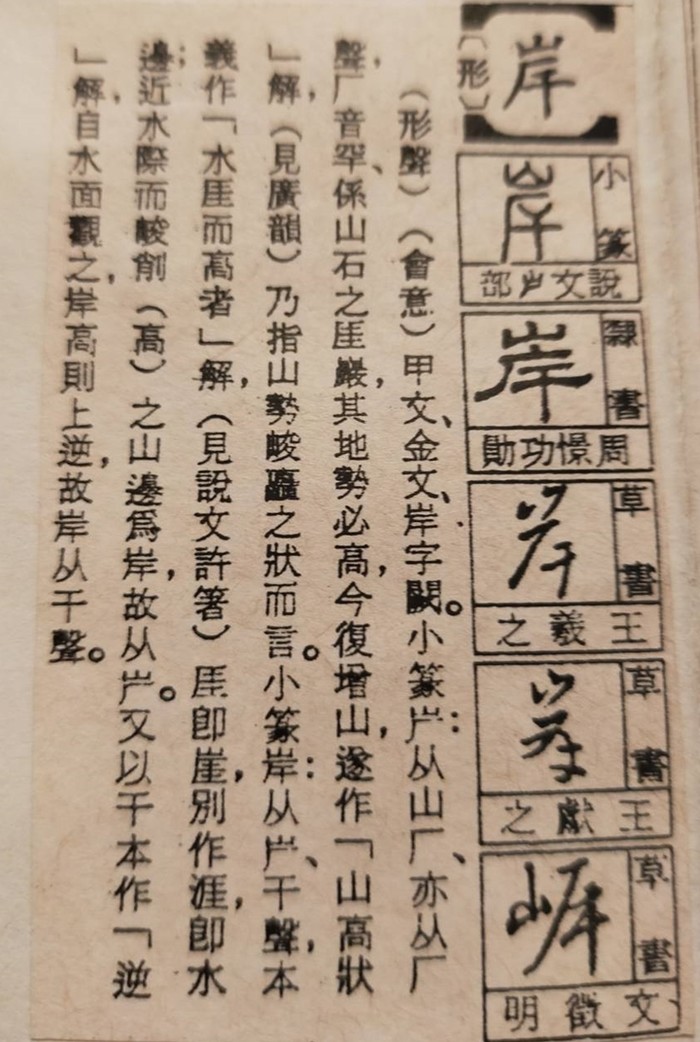 岸
（形）
小篆
説文屵部
隸書
周憬功勛
草書
王羲之
草書
王獻之
草書
文徵明
（形聲）（會意）甲文、金文、岸字闕。小篆屵：从山厂、亦从厂
聲，厂音罕、係山石之厓巖，其地勢必高，今復增山，遂作「山高狀
」解，（見廣韻）乃指山勢峻矗之狀而言。小篆岸：从屵、干聲，本
義作「水厓而高者」解，（見說文許箸）厓卽崖，別作涯，卽水
邊；邊近水際而峻削（高）之山邊爲岸，故从屵。又以干本作「逆
」解，自水面觀之，岸高則上逆，故岸从干聲。